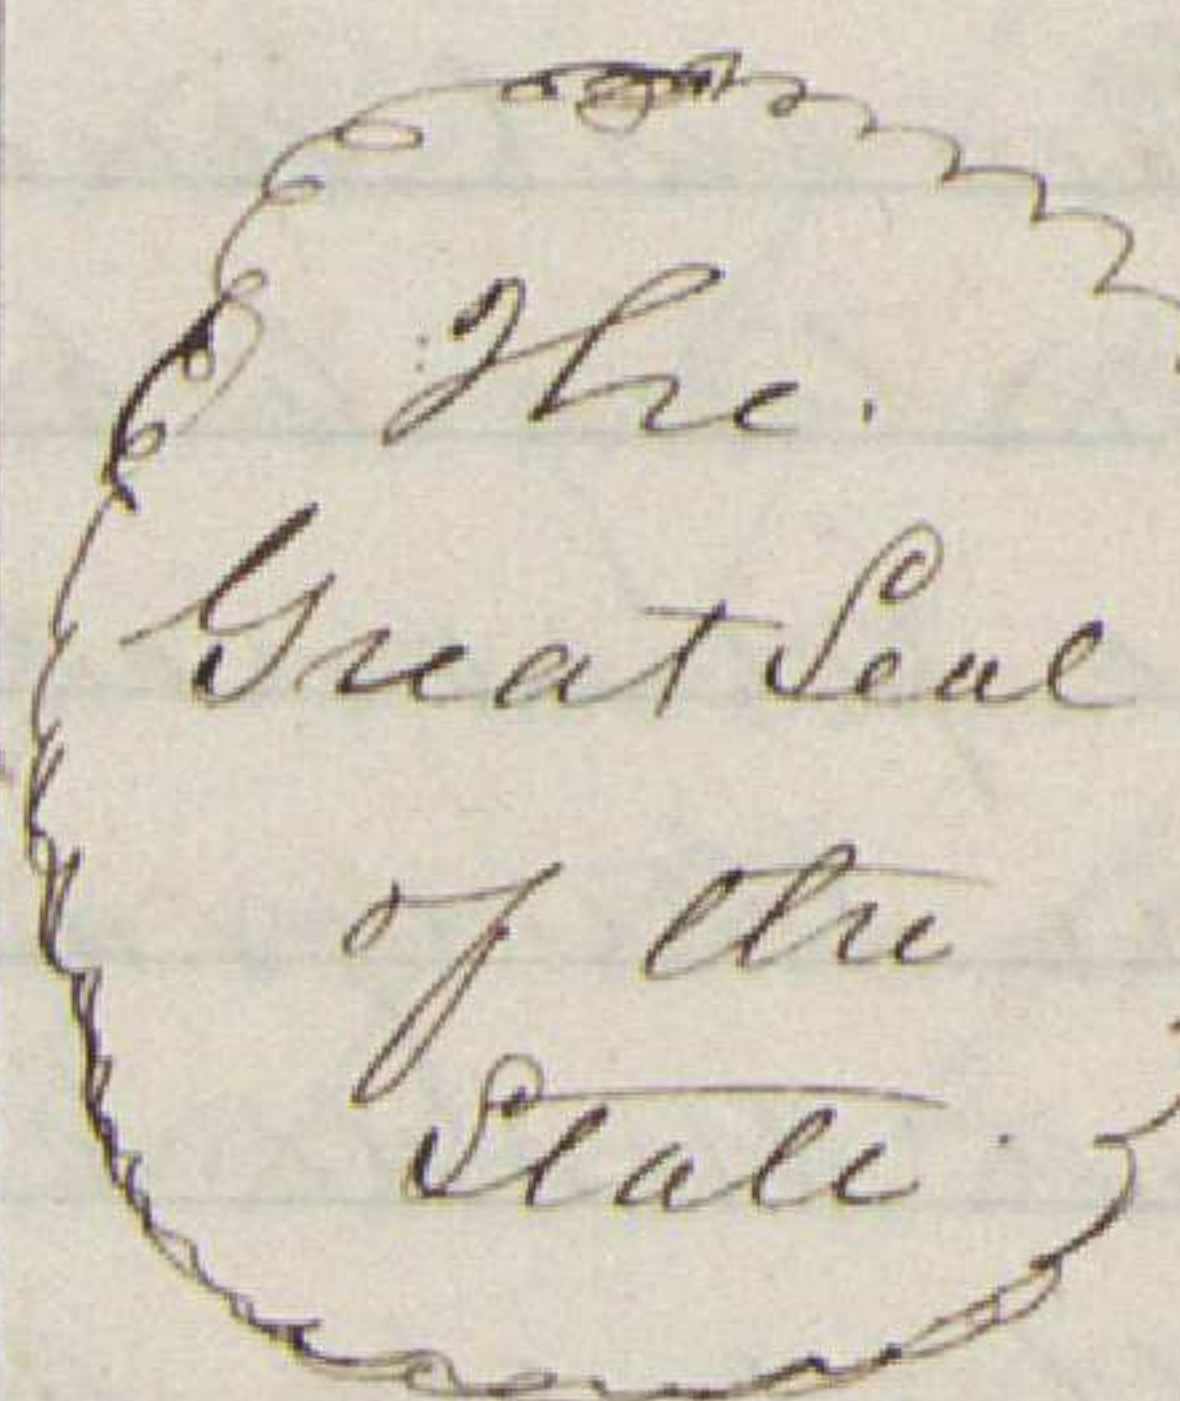 The.
Great Seal
of the
State.